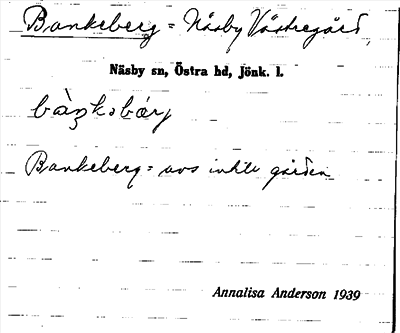 Bankeberg = Näsby Västregård,
Näsby sn, Östra hd, Jönk. l.
Bankeberg = avs inkl. gården
Annalisa Anderson 1939